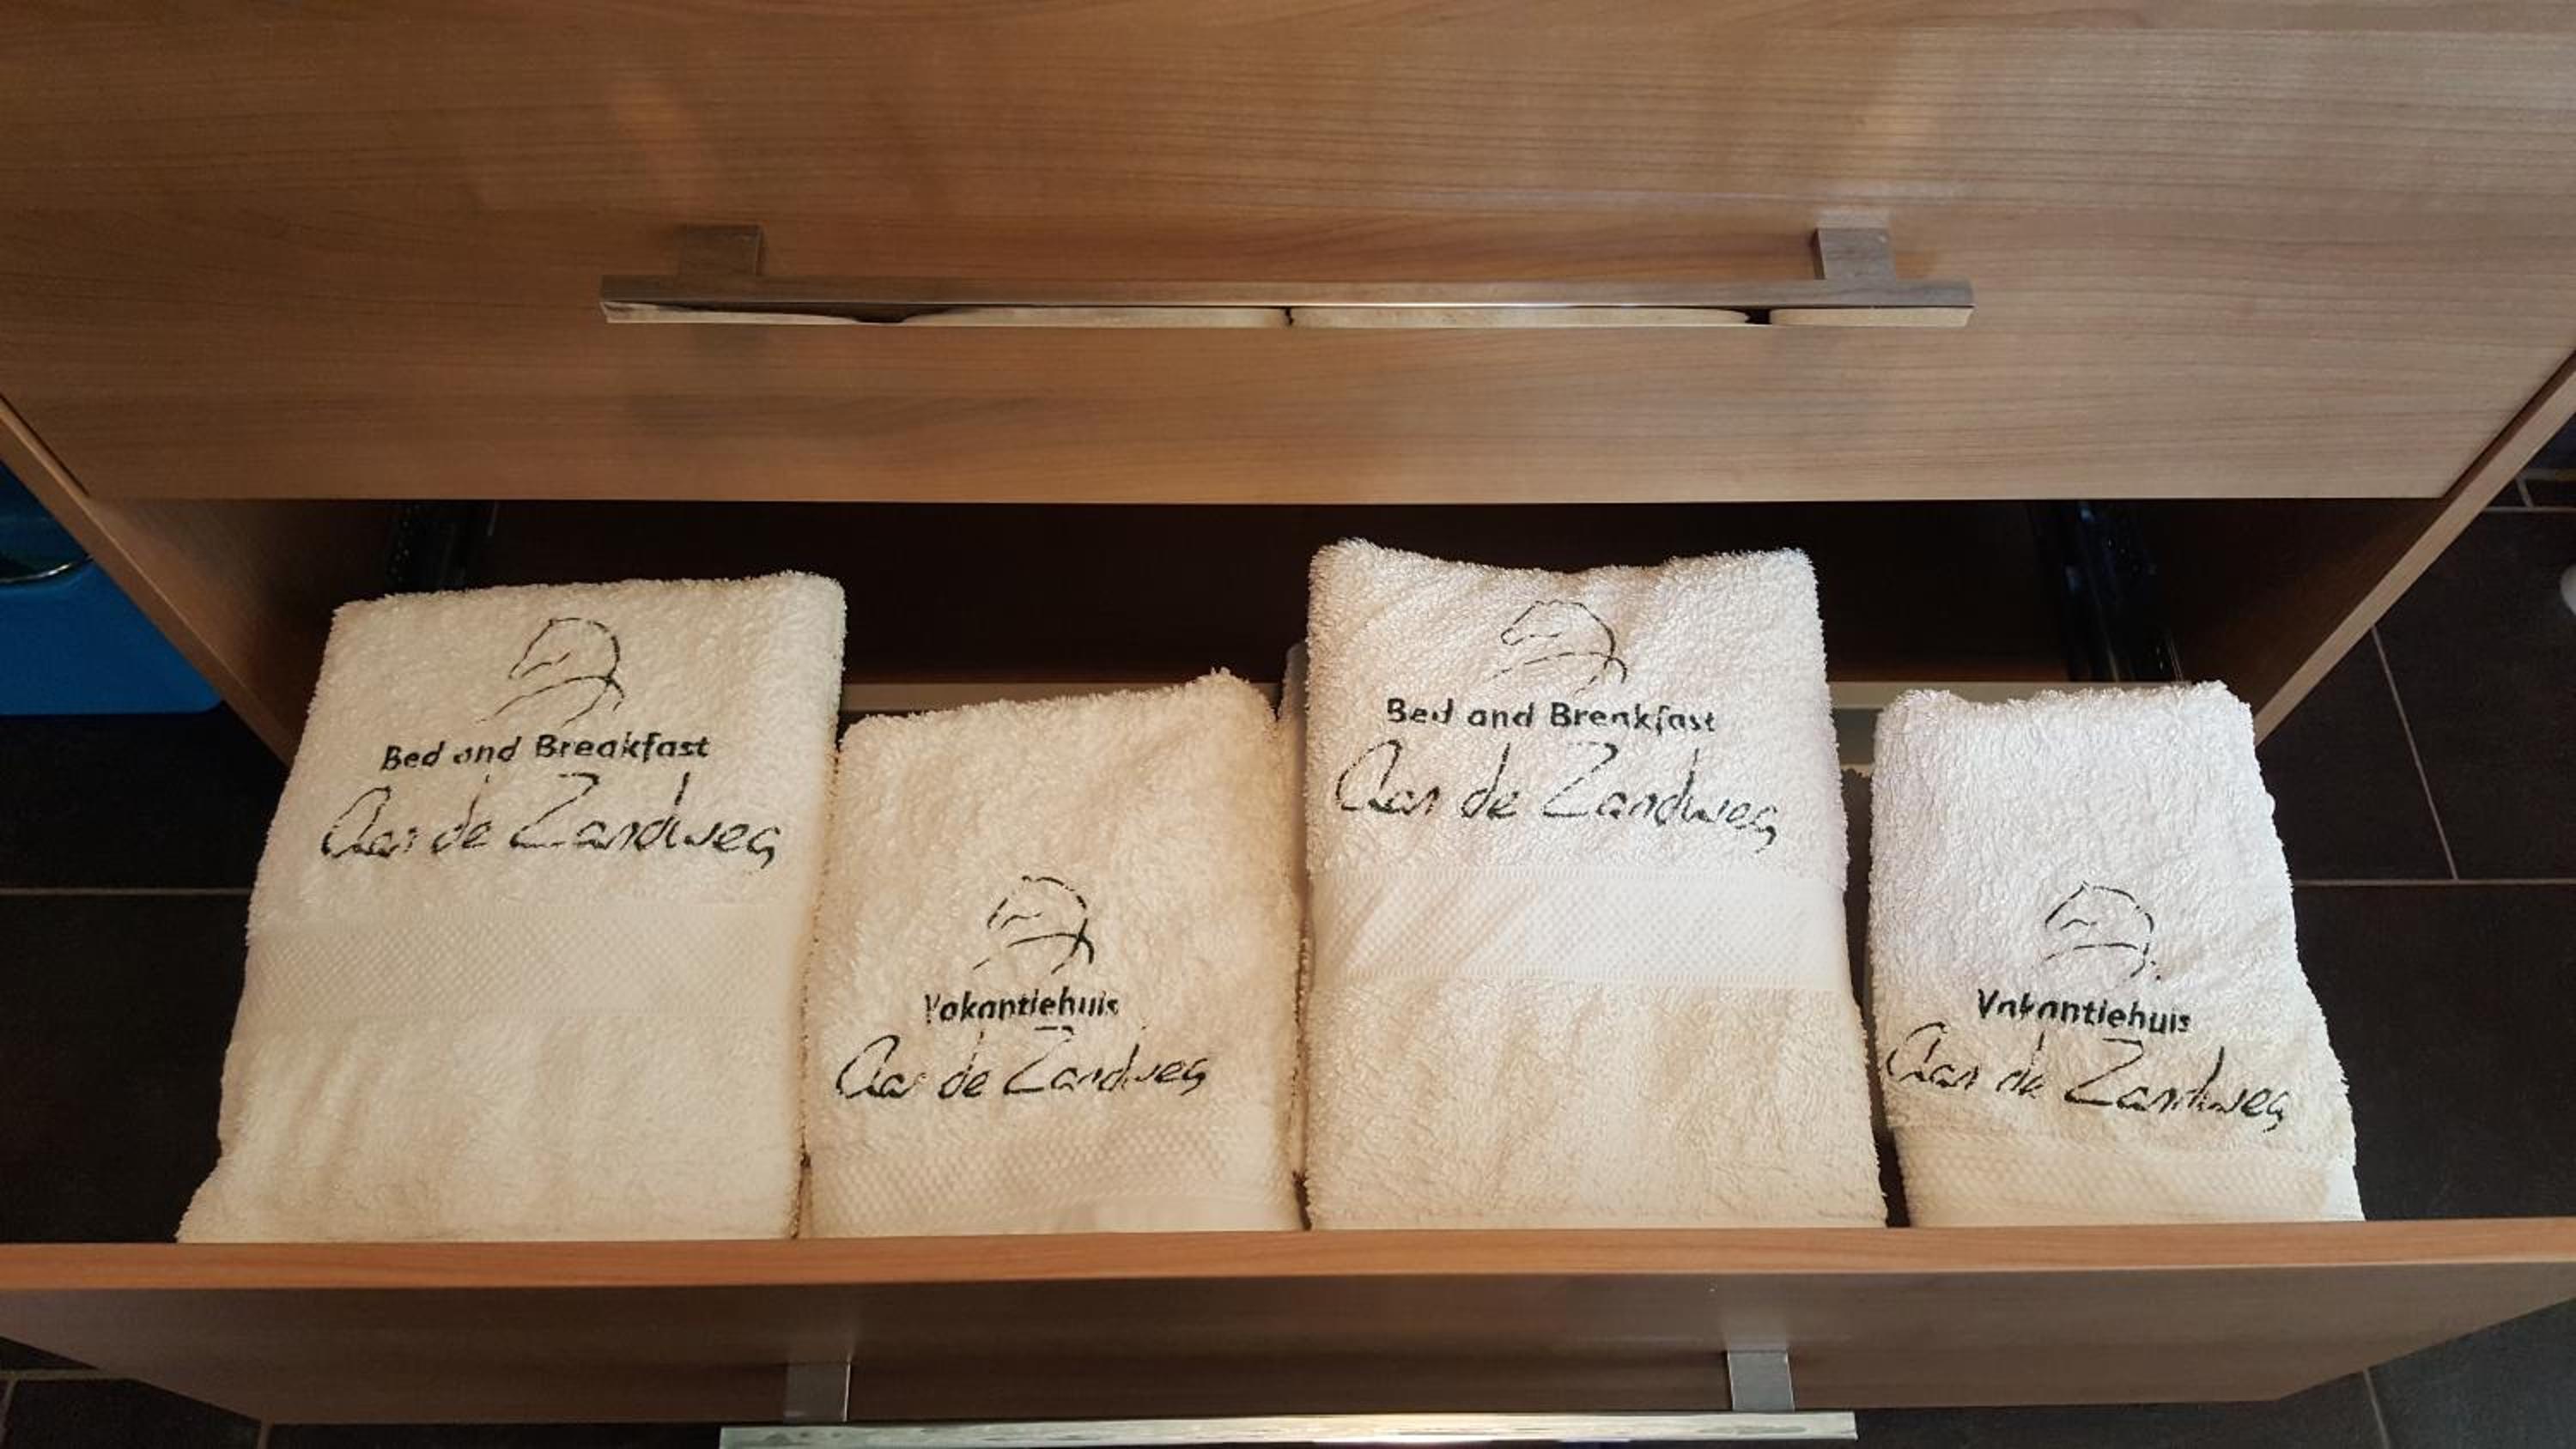 Bed and Breakfast
Aan de Zandweg
Vakantiehuis
Aan de Zandweg
Bed and Breakfast
Aan de Zandweg
Vakantiehuis
Aan de Zandweg